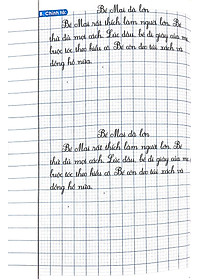 Bé Mai đã lớn
B. Chính tả:
Bé Mai rất thích làm người lớn. Bé
thử đủ mọi cách. Lúc đầu, bé đi giày của mẹ,
buộc tóc theo kiểu cô. Bé còn đeo túi xách và
đồng hồ nữa.
Bé Mai đã lớn
Bé Mai rất thích làm người lớn. Bé
thử đủ mọi cách. Lúc đầu, bé đi giày của mẹ,
buộc tóc theo kiểu cô. Bé còn đeo túi xách và
đồng hồ nữa.